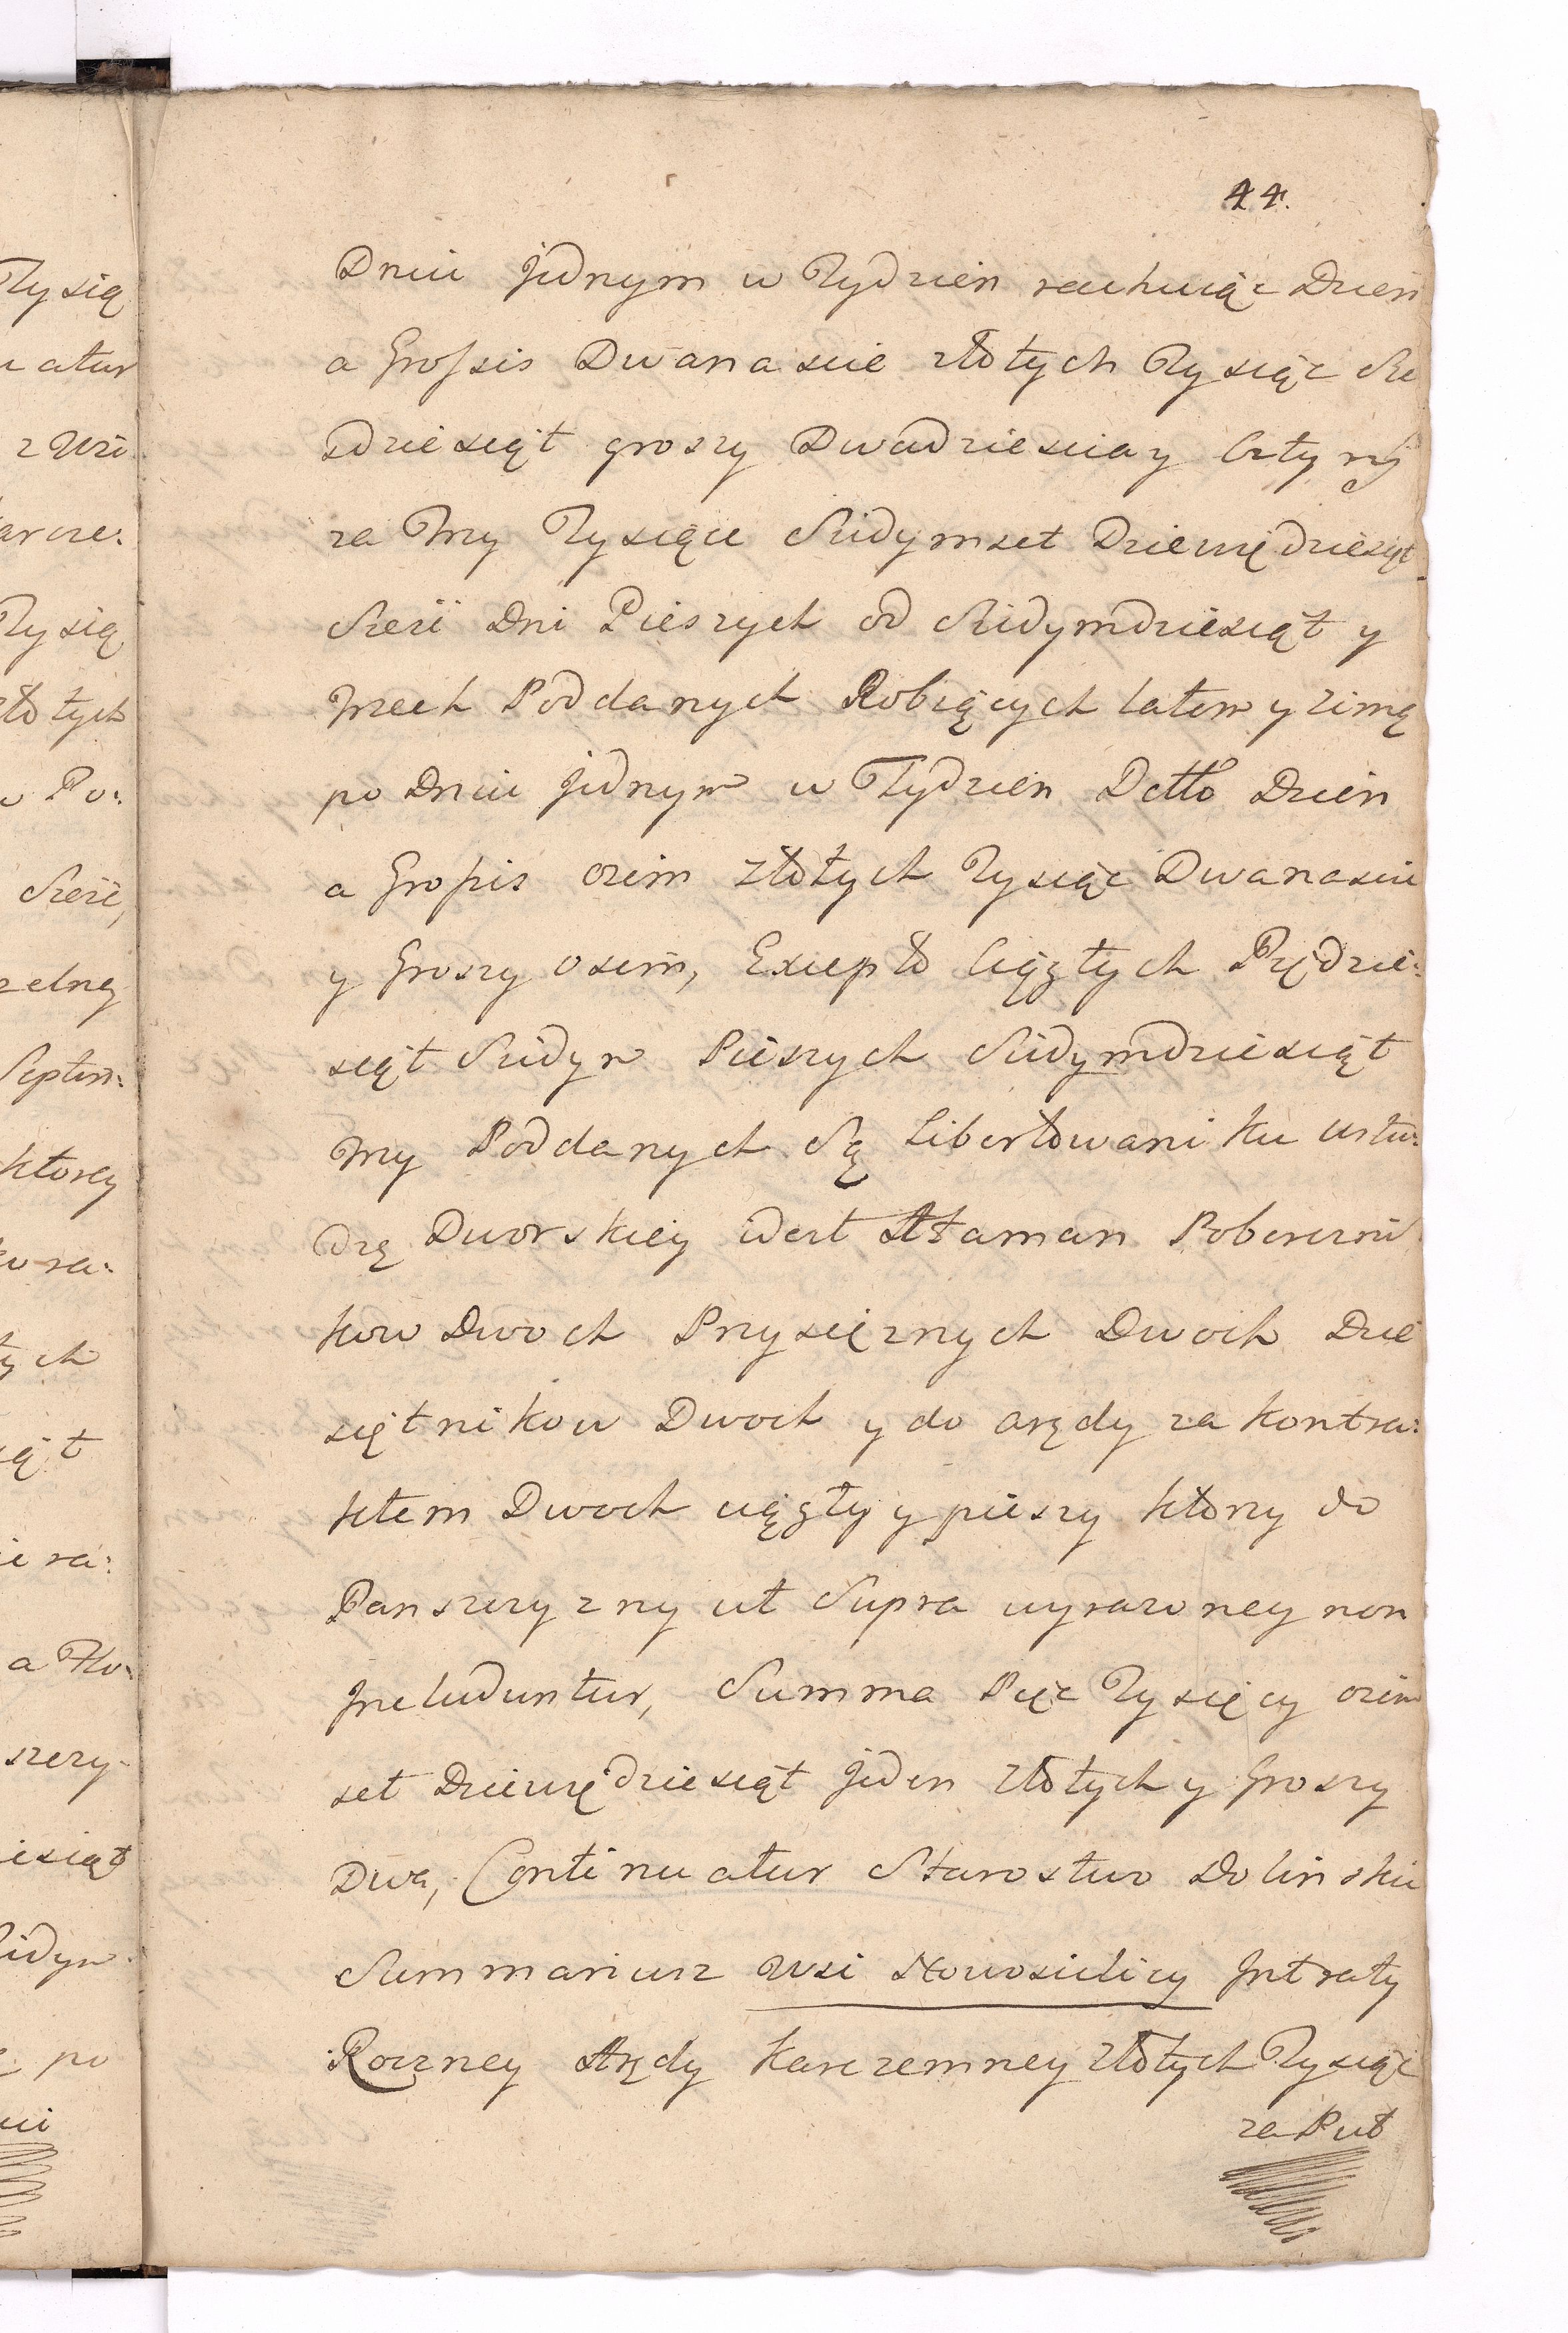 44.
Dniu jednym w Tydzien rachuiąc Dzien
a Grossis Dwanascie złotych Tysiąc Sie
dziesiąt groszy Dwadziesciay Czterÿ
za Trzy Tysiące Siedymset Dziewiędziesiąt
Szesć Dni Pieszych od Siedymdziesiąt y
Trzech Poddanych Robiących latem y zimą
po Dniu jednym w Tydzien Detto Dzien
a Grossis osim złotych Tysiąc Dwanascie
y Groszy osim, Excepto Ciągłych Piędzie:
siąt Siedym Pieszych Siedymdziesiąt
Trzy Poddanych Są Libertowani ku usłu:
dzę Dworskiey idest Ataman Pobereżni
kow Dwoch Przysiężnych Dwoch Dzie
siętnikow Dwoch y do arędy za kontra:
ktem Dwoch ciągły y pieszy ktory do
Panszczyzny ut Supra wyrazoney non
Jncluduntur, Summa Pięć Tysięcy osim
set Dziewiędziesiąt jeden złotych y Groszy
Dwa, Continuatur Starostwo Dolinskie
Summariusz Wsi Nowosielicy Jntraty
Roczney Arędy karczemney złotych Tysiąc
za Puł
Tysią
uatur
z Wsi
karcze:
Tysią
złotych
Po:
Szesć,
Septem:
ktorey
tych
siąt
szczy-
iesiąt
iedym
po